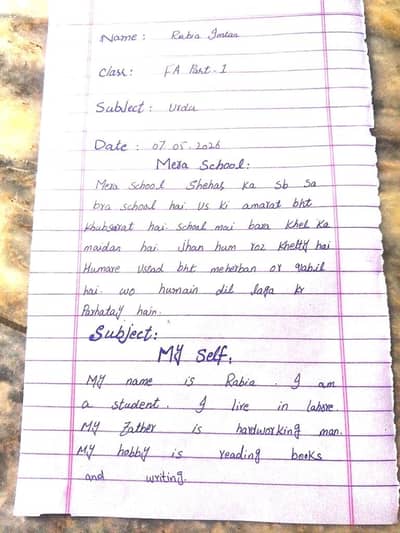 Name: Rabia Imran
Class: FA Part-I
Subject: Urdu
Date: 07.05.2026
Mera School:
Mera school Shehar ka sb sa
bra school hai Us ki amarat bht
khubsurat hai. school mai bara khel ka
maidan hai. Jhan hum roz khelty hai
Humare Ustad bht meherban or qabil
hai. wo humain dil laga kr
Parhatay hain.
Subject:
My Self.
My name is Rabia. I am
a student. I live in lahore.
My Father is hardworking man.
My hobby is reading books
and writing.